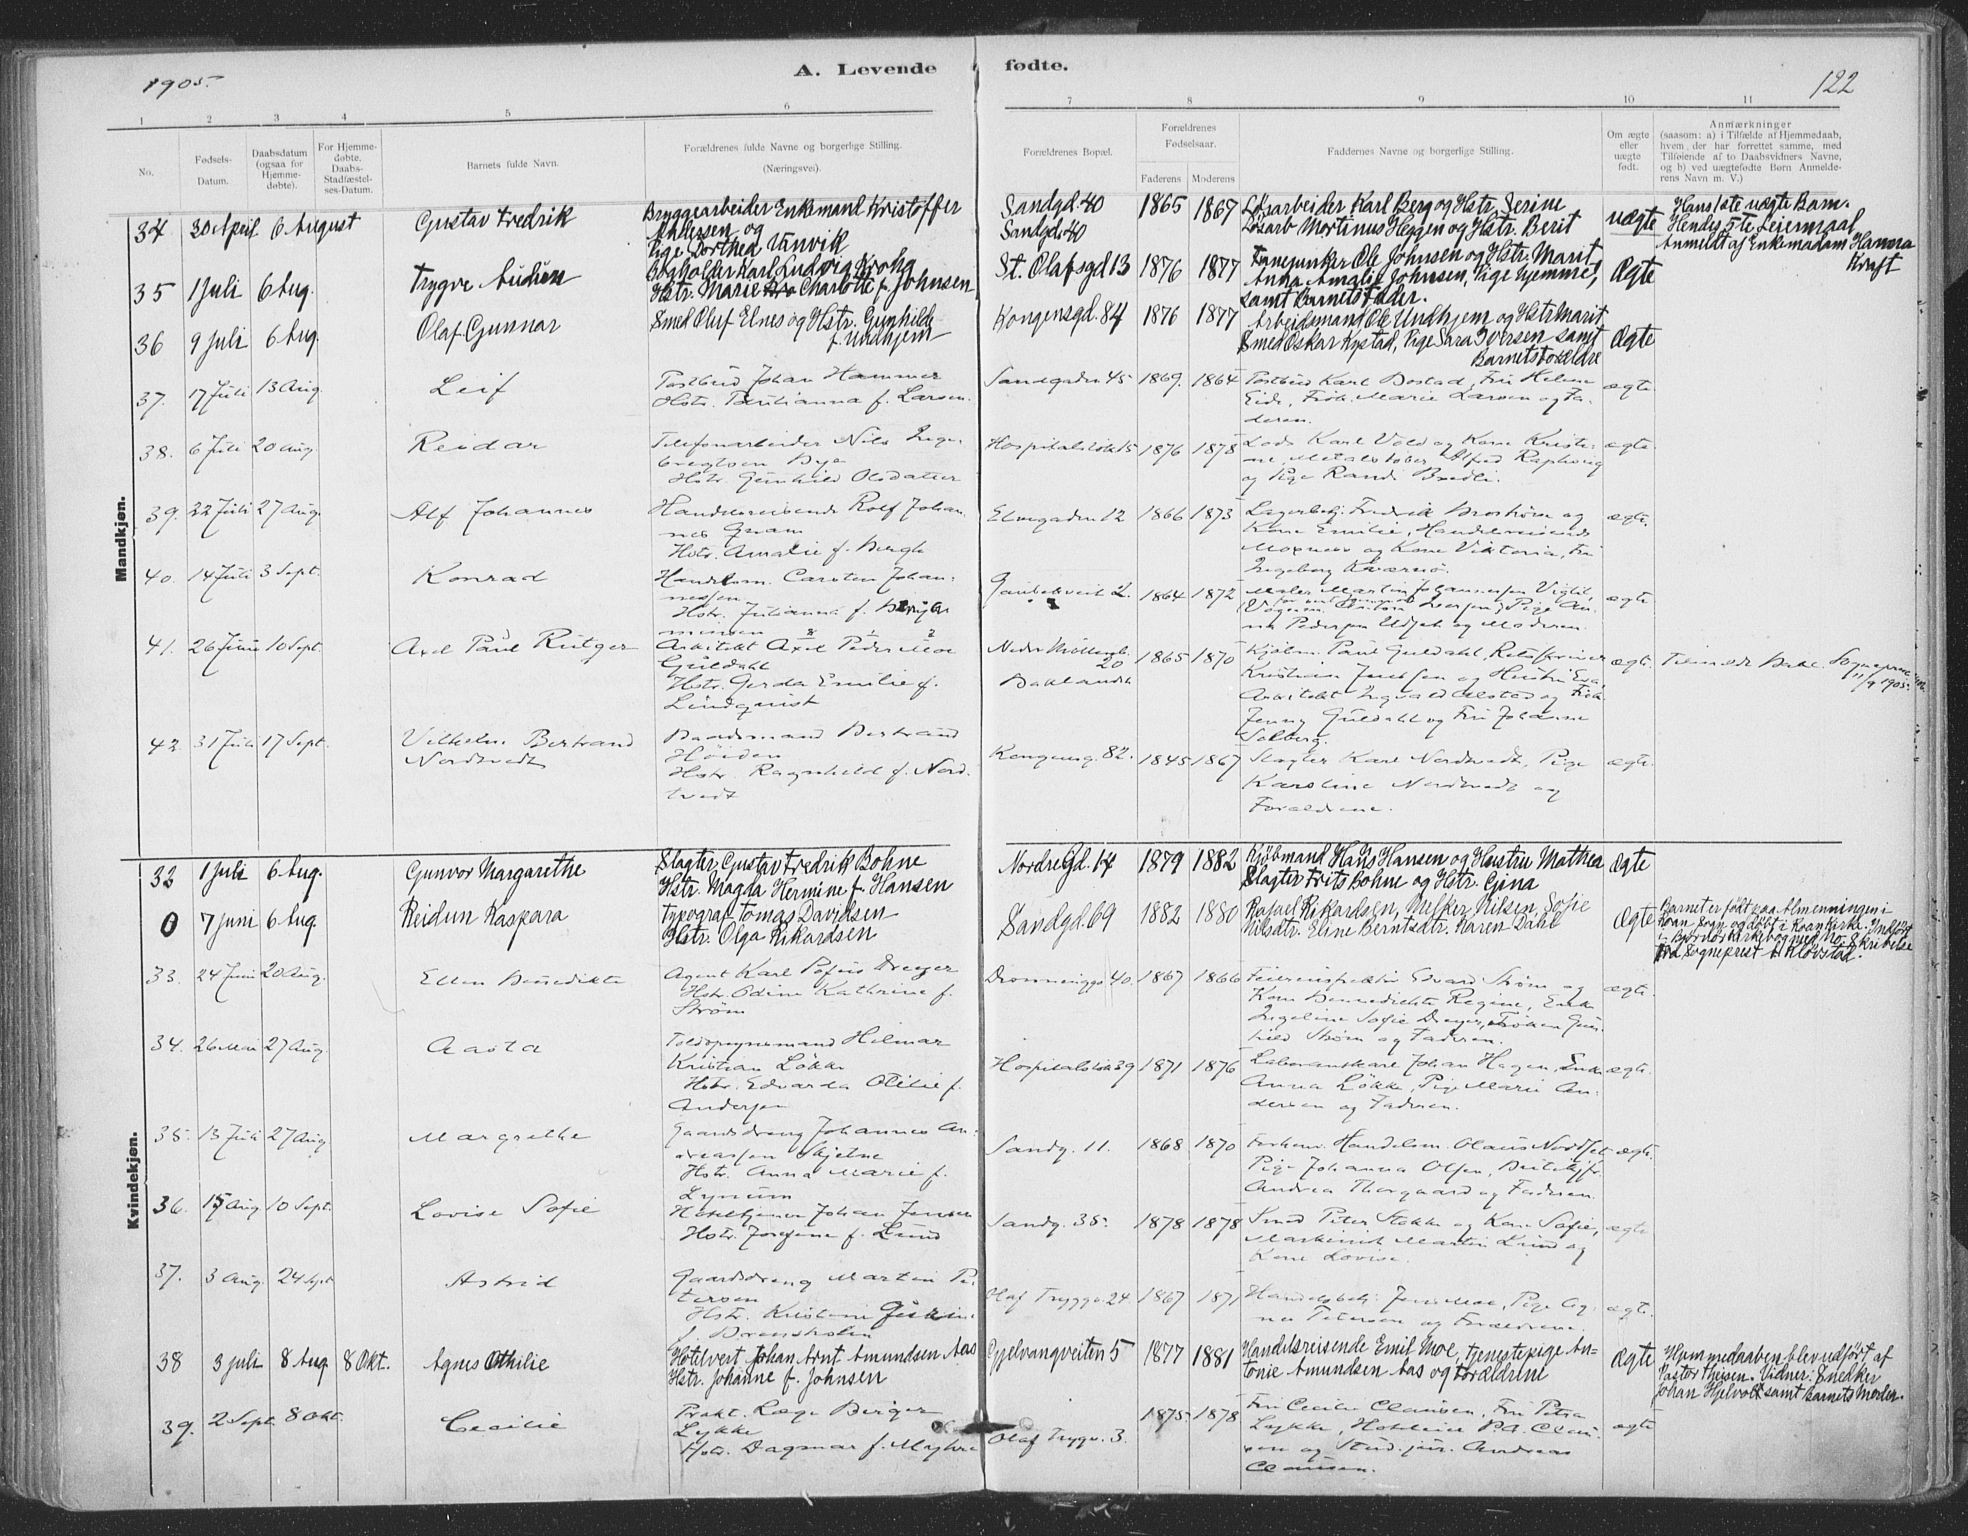 1905.
A. Levende fødte.
122
1 2 3 4 5 6 7 8 9 10 11
No.
Fødsels-Datum.
Daabsdatum (ogsaa for Hjemmedøbte).
For Hjemmedøbte. Daabs-Stadfæstelses-Datum.
Barnets fulde Navn.
Forældrenes fulde Navne og borgerlige Stilling.
(Næringsvei).
Forældrenes Bopæl.
Forældrenes Fødselsaar.
Faderens Moderens
Faddernes Navne og borgerlige Stilling.
Om ægte eller uægte født.
Anmærkninger
(saasom: a) i Tilfælde af Hjemmedaab, hvem der har forrettet samme, med Tilføiende af to Daabsvidners Navne, og b) ved uægtefødte Børn Anmelderens Navn m. V.)
Mandkjøn.
34 30 April 6 August Gustav Fredrik
Bryggearbeider Enkemand Kristoffer
Andersen og
Pige Dorthea Vanvik
Sandgd 40
Sandgd. 40
1865 1867
Løsarbeider Karl Berg og Hstr. Serine
Løsarb Mortinus Heggen og Hstr. Berit
uægte
Hans 1ste uægte Barn.
Hendes 5te Leiermaal
Anmeldt af Enkemadam Hanna
Kraft
35 1 Juli 6 Aug. Trygve Audun
Bogholder Karl Ludvig Krohg
Hstr. Marie Charlotte f. Johnsen
St. Olafsgd 13 1876 1877
Ole Johnsen og Hstr. Marit
Anna Amalie Johnsen, Pige hjemme,
samt Barnets Fader.
Ægte
36 9 Juli 6 Aug. Olaf Gunnar
Smed Oluf Elnes og Hstr. Gunhild
f. Undhjem
Kongensgd. 84 1876 1877
Arbeidsmand Ole Undhjem og Hstr Marit
Smed Oskar Nystad, Pige Sara Iversen samt
Barnets Forældre
Ægte
37. 17 Juli 13 Aug. Leif
Postbud Johan Hammer
Hstr. f. Larsen.
Sandgaden 45 1869. 1864
Postbud Karl Bostad, Fru Helene
Eide, Frøk. Marie Larsen og Fa-
deren.
ægte
38. 6 Juli 20 Aug. Reidar
Telefonarbeider Nils Inge-
bregtsen Bye
Hstr. Gunhild Olsdatter
Hospitalsløk 15 1876 1878
Lods Karl Vold og Kone Kristi-
ne, Metalstøber Alfred
og Pige Randi
ægte.
39. 22 Juli 27 Aug. Alf Johannes
Handelsreisende Rolf Johan-
nes Gram
Hstr. Amalie f. Bergh
Elvegaden 12 1866 1873
Lagerbetj. Fredrik Brostrøm og
Kone Emilie, Handelsreisende
Moxness og Kone Viktoria, Fru
Ingeborg Kværnø.
ægte.
40. 14 Juli 3 Sept. Konrad
Handelsm. Carsten Johan-
nessen
Hstr. Julianna f.
1864 1872
Maler Martin Johannessen
Pige An-
na Pedersen og Moderen.
ægte.
41. 26 Juni 10 Sept. Axel Paul Rutger
Arkitekt Axel Peder Moe
Guldahl
Hstr. Gerda Emilie f.
Lundquist
Nedre Møllenb.
20
Baklandet
1865 1870
Kjøbm. Paul Guldahl, Retsskriver
Kristian Jenssen og Hustru Eva,
Arkitekt Ingvald Alstad og Frøk.
Jenny Guldahl og Fru Johanne
Solberg.
ægte.
Tilmeldt Bakl. Sognepræst
11/9 1905.
42. 31 Juli 17 Sept. Vilhelm Bertrand
Nordtvedt
Baadsmand Bertrand
Høiden
Hstr. Ragnhild f. Nord-
tvedt
Kongensg. 82. 1845 1867
Slagter Karl Nordtvedt, Pige
Karoline Nordtvedt og
Forældrene.
ægte.
Kvindekjøn.
32 1 Juli 6 Aug. Gunvor Margarethe
Slagter Gustav Fredrik Bohne
Hstr. Magda Hermine f. Hansen
Nordre Gd. 14 1879 1882
Kjøbmand Hans Hansen og Hustru Mathea
Slagter Frits Bohne og Hstr. Gina
Ægte
0 7 Juni 6 Aug. Reidun Kaspara
Typograf Tomas Davidsen
Hstr. Olga Rikardsen
Sandgd. 69 1882 1880
Rafael Rikardsen, Melker Nilsen, Sofie
Nilsdtr. Eline Berntsdtr. Karen Dahl
Ægte
Barnet er født paa Almenningen i
Roan Sogn og døbt i Roan Kirke. Indført
i Bjørnør Kirkebog med No. Skrivelse
fra Sogneprest A Kløvstad.
33. 24 Juni 20 Aug. Ellen Benedikte
Agent Karl Dreyer
Hstr. Odine Kathrine f.
Strøm
Dronningg. 40. 1867 1866
Feierinspektør Edvard Strøm og
Kone Bennedichte Regine, Enke
Ingeline Sofie Dreyer, Frøken Gun-
hild Strøm og Faderen.
ægte.
34. 26 Mai 27 Aug. Aasta
Toldopsynsmand Hilmar
Kristian Løkke
Hstr. Edvarda Otilie f.
Andersen
Hospitalsløk 39 1871 1876
Johan Hagen, Enke
Anna Løkke, Pige Marie An-
dersen og Faderen.
ægte.
35. 13 Juli 27 Aug. Margrethe
Gaardsdreng Johannes An-
dreassen Skjetne
Hstr. Anna Marie f.
Lynum
Sandg. 11. 1868 1870
Forhenv. Handelsm. Olaus Nordset
Pige Johanna Olsen, Butikjfr.
Andrea Thorgaard og Faderen.
ægte.
36. 15 Aug 10 Sept. Lovise Sofie
Hoteltjener Johan Jensen
Hstr. Josefine f. Lund
Sandg. 35. 1878 1878
Smed Peter Stokke og Kone Sofie,
Maskinist Martin Lund og
Kone Lovise.
ægte
37. 3 Aug. 24 Sept Astrid
Gaardsdreng Martin Pe-
tersen
Hstr. Kristine
f. Brenshølen
Olaf Trygv. 24 1867 1871
Handelsbetj. Jens Moe, Pige Ag-
nes Petersen og Forældrene.
ægte.
38 3 Juli 8 Aug 8 Okt. Agnes Othilie
Hotelvert Johan Arnt Amundsen Aas
Hstr. Johanne f. Johnsen
Gjelvangveiten 5 1877 1881
Handelsreisende Emil Moe, Tjenestepige An-
tonie Amundsen Aas og Forældrene
Ægte
Hjemmedaaben blev udført af
Pastor Theisen. Vidner: Snedker
Johan Hjelvolt samt Barnets Moder.
39. 2 Sept. 8 Okt. Cecilie
Prakt. Læge Birger
Lykke
Hstr. Dagmar f. Myhre
Olaf Trygv. 3. 1875 1878
Fru Cecilie Claussen, Fru Petra
Lykke, Hoteleier P. A. Claus-
sen og Stud. jur. Andreas
Claussen.
ægte